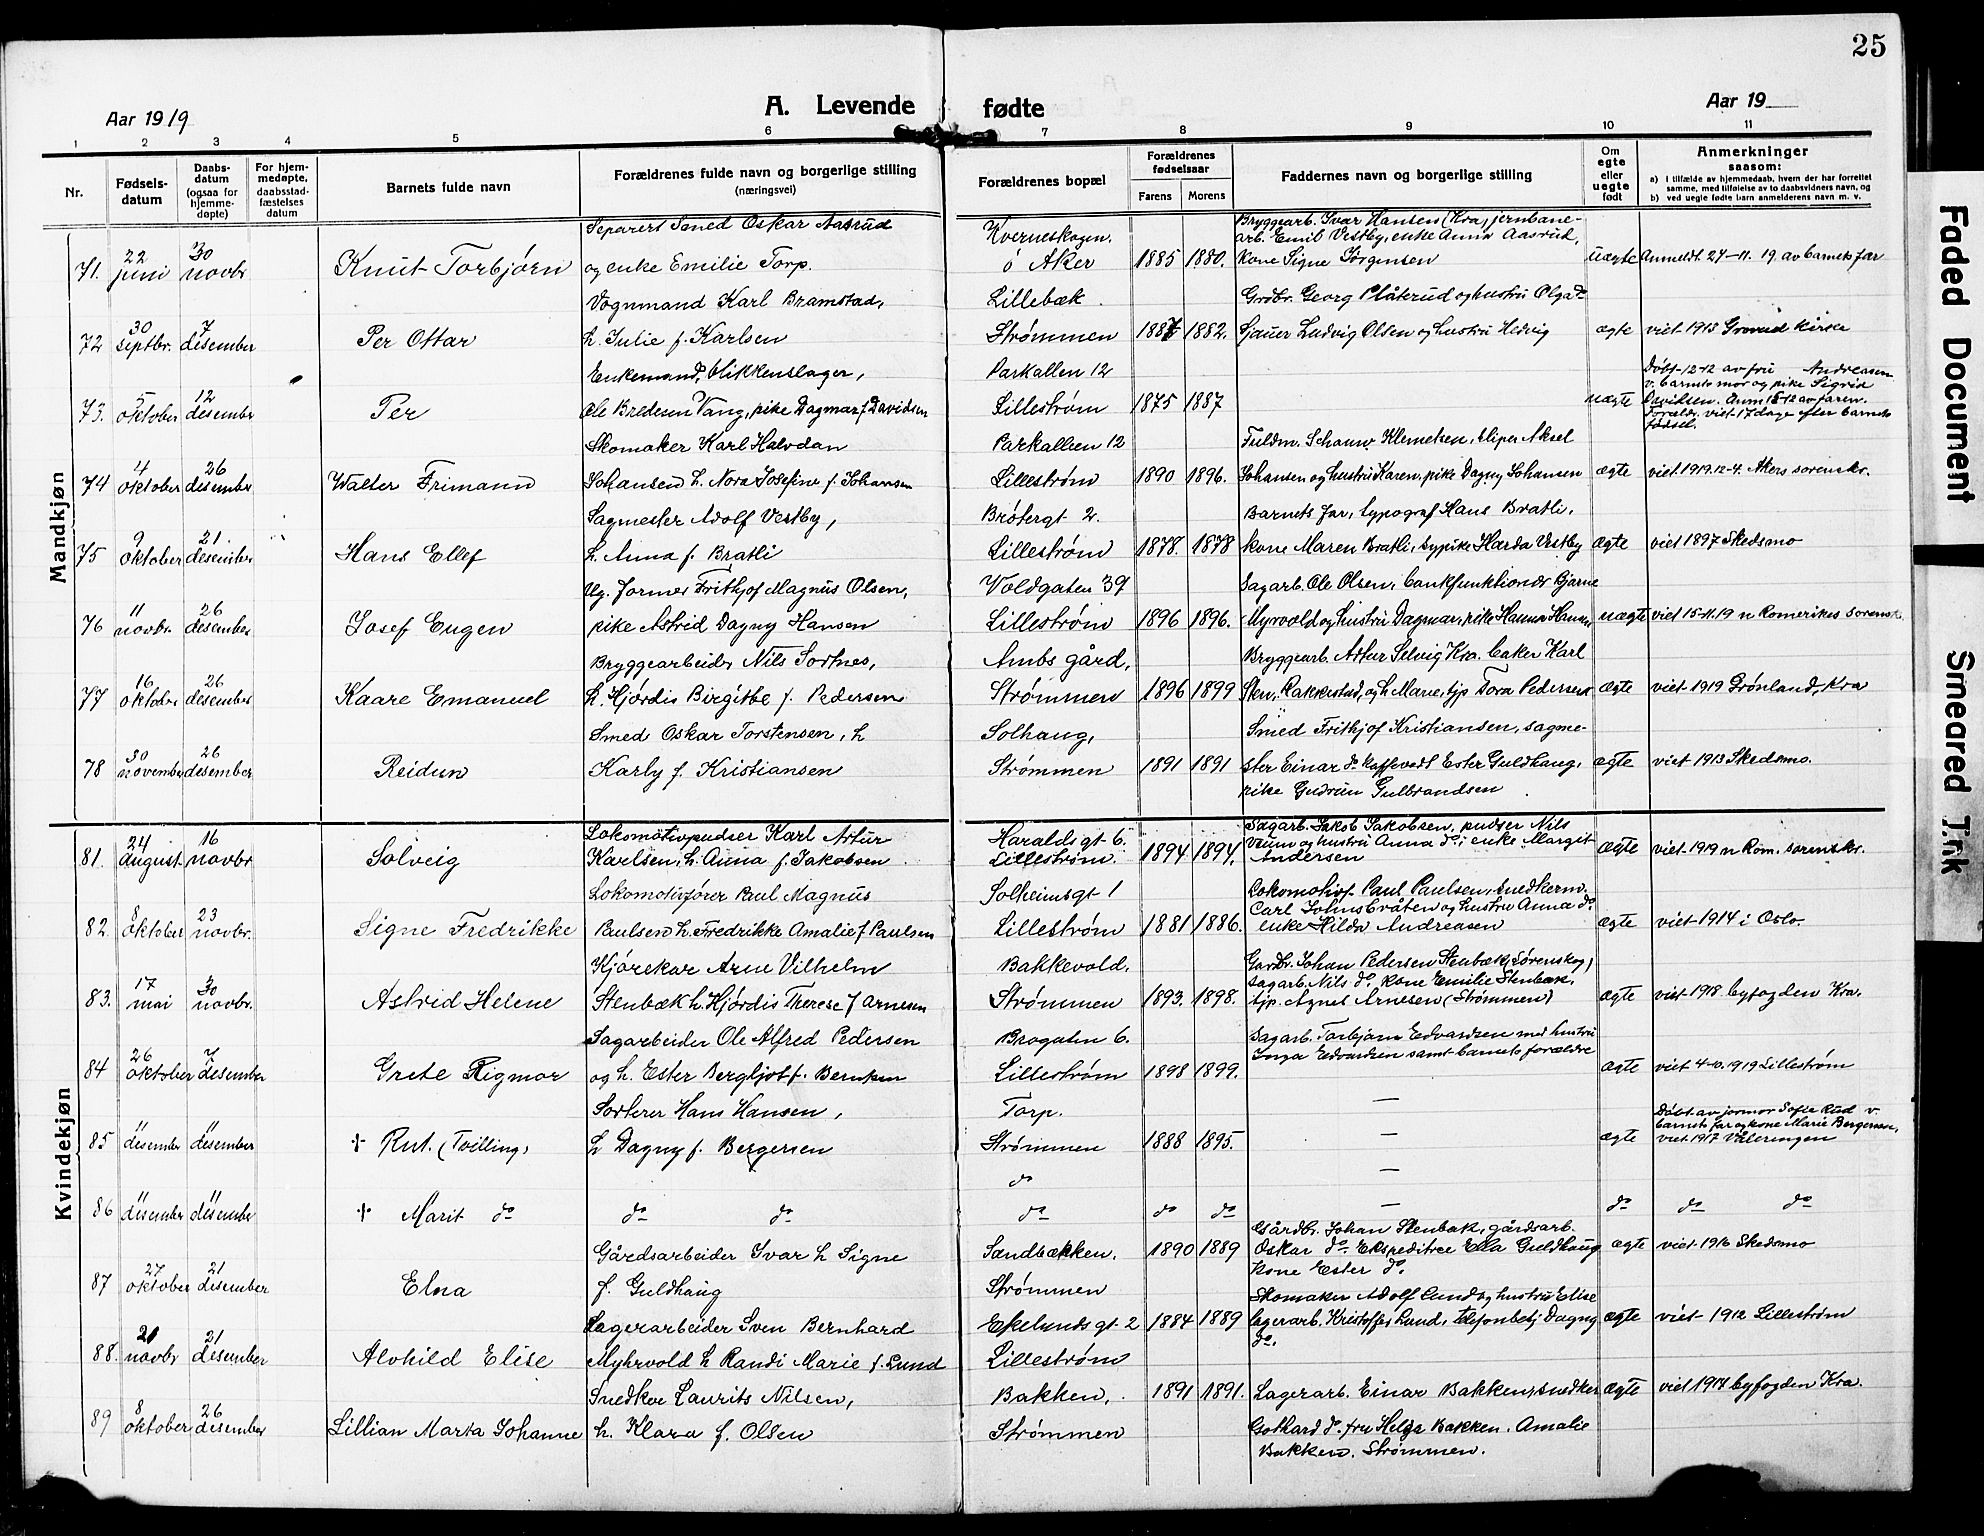 25
Aar 1919
A. Levende fødte
Aar 19
1 2 3 4 5 6 7 8 9 10 11
Nr.
Fødsels-
datum
Daabs-
datum
(ogsaa for
hjemme-
døpte)
For hjem-
medøpte,
daabsstad-
fæstelses
datum
Barnets fulde navn
Forældrenes fulde navn og borgerlige stilling
(næringsvei)
Forældrenes bopæl
Forældrenes
fødselsaar
Farens Morens
Faddernes navn og borgerlige stilling
Om
egte
eller
uegte
født
Anmerkninger
saasom:
a) I tilfælde av hjemmedaab, hvem der har forrettet
samme, med tilføielse av to daabsvidners navn, og
b) ved uegte fødte barn anmelderens navn m. v.
Mandkjøn
Separert Smed Oskar Aasrud Kverneskogen. Bryggearb. Ivar Hansen (Kra) jernbane-
arb. Emil Vestby, enke Anna Aasrud,
71. 22 juni 30 novbr Knut Torbjørn og enke Emilie Torp. ö Aker 1885 1880. kone Signe Jørgensen uægte Anmeldt 27-11. 19 av barnets far
Vognmand Karl Bramstad, Lillebæk. Grdbr. Georg Plåterud og hustru Olga do
72 30 septbr. 7 desember Per Ottar h. Julie f. Karlsen Strømmen 1887 1882. Sjauer Ludvig Olsen og hustru Hedvig ægte viet 1913 Grorud kirke
Enkemand, blikkenslager, Parkalleen 12 Døbt 12-12 av fru Andreasen
v. barnets mor og pike Sigrid
73. 5 oktober 12 desember Per Ole Bredesen Vang, pike Dagmar f Davidsen Lillestrøm 1875 1887 uægte Davidsen. Anm 15-12 av faren.
Forældr. viet 17 dage efter barnets
fødsel.
Skomaker Karl Halvdan Parkalleen 12 Fuldm. Schauw Klemetsen, sliper Aksel
74 4 oktober 26 desember Walter Frimann Johansen h. Nora Josefine f. Johansen Lillestrøm 1890 1896. Johansen og hustru Karen, pike Dagny Johansen ægte viet 1919. 12-4. Akers sorenskr.
Sagmester Adolf Vestby, Brøtergt 2. Barnets far, typograf Hans Bratli,
75 9 oktober 21. desember Hans Ellef h. Anna f. Bratli Lillestrøm 1878. 1878 kone Maren Bratli, sypike Harda Vestby ægte viet 1897 Skedsmo
Ug. former Frithjof Magnus Olsen, Voldgaten 39 Sagarb. Ole Olsen, bankfunktionær Bjarne
76 11 novbr. 26 desember Josef Eugen pike Astrid Dagny Hansen Lillestrøm 1896 1896. Myrvold og hustru Dagmar, pike Hanna Hansen uægte viet 15-11. 19 n Romerikes sorensk
Bryggearbeider Nils Sortnes, Ambs gård, Bryggearb. Artur Selvig Kra. baker Karl
77 16 oktober 26 desember Kaare Emanuel h. Hjørdis Birgithe f. Pedersen Strømmen 1896 1899 Sten, Rakkestad, og h Marie, tjp Tora Pedersen ægte viet 1919 Grønland, Kra
Smed Oskar Torstensen, h Solhaug, Smed Frithjof Kristiansen, sagme-
78 30 november 26 desember Reidun Karly f. Kristiansen Strømmen 1891 1891 ster Einar do kaffevedt Ester Guldhaug, ægte viet 1913 Skedsmo.
pike Gudrun Gulbrandsen
Kvindekjøn
Lokomotivpudser Karl Artur Haralds gt 6. Sagarb. Jakob Jakobsen, pudser Nils
81. 24 august 16 novbr. Solveig Karlsen, h. Anna f. Jakobsen Lillestrøm. 1894 1894. og hustru Anna do, enke Margit ægte viet 1919 n Rom. sorenskr.
Andersen
Lokomotivfører Paul Magnus Solheimsgt 1 Lokomotivf. Paul Paulsen, snedkerm.
Carl Johns bråten og hustru Anna do
82. 8 oktober 23 novbr. Signe Fredrikke Paulsen h. Fredrikke Amalie f Paulsen Lillestrøm 1881 1886. enke Hilda Andreasen ægte viet 1914 i Oslo.
Kjørekar Arne Vilhelm Bakkevold. Gardbr. Johan Pedersen Stenbæk, Sørenskog,
sagarb. Nils do, kone Emilie Stenbæk,
83. 17 mai 30 novbr. Astrid Helene Stenbæk h. Hjørdis Therese f Arnesen Strømmen 1893. 1898. tjp. Agnes Arnesen (Strømmen) ægte viet 1918. byfogden Kra.
Sagarbeider Ole Alfred Pedersen Brogaten 6. Sagarb. Torbjørn Edvardsen med hustru
Inga Edvardsen samt barnets forældre
84 26 oktober 7 desember Grete Rigmor og h. Ester Bergljot f. Berntsen Lillestrøm 1898 1899. ægte viet 4-10. 1919 Lillestrøm
Sorterer Hans Hansen, Torp. — Døbt av jormor Sofie Rud v.
barnets far og kone Marie Bergersen,
85 11 desember 11 desember † Rut. (Tvilling) h Dagny f. Bergersen Strømmen 1888 1895. — ægte viet 1917 Vålerengen
do —
86 11 desember 11 desember † Marit do do do do do do — do do do
Gårdbr. Johan Stenbæk, gårdsarb.
Gårdsarbeider Ivar h Signe Sandbækken. 1890 1889 Oskar do. Ekspeditrice Ella Guldhaug ægte viet 1916 Skedsmo
kone Ester do.
87 27 oktober 21 desember Elna f. Guldhaug Strømmen
Skomaker Adolf Lund og hustru Elise
Lagerarbeider Sven Bernhard Ekelunds gt 2 1884 1889 lagerarb. Kristoffer Lund, telefonbetj Dagny ægte viet 1912 Lillestrøm
do.
88. 21 novbr 21 desember Alvhild Elise Myhrvold h Randi Marie f. Lund Lillestrøm
Snedker Laurits Nilsen, Bakken, 1891 1891. Lagerarb. Einar Bakken, snedker ægte viet 1917 byfogden Kra.
89 8 oktober 26 desember Lillian Marta Johanne h. Klara f. Olsen Strømmen Gothard do. fru Helga Bakken. Amalie
Bakken. Strømmen.
Faded Document
Smeared Ink